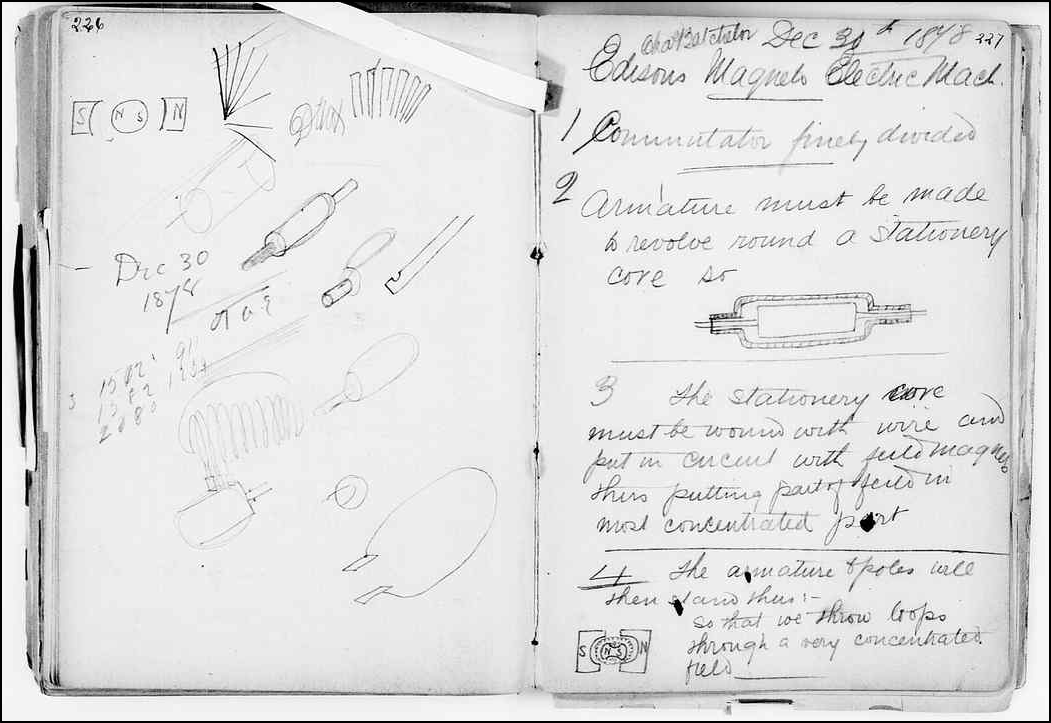 226
S N S N
Dec 30
1878
227
Chas Batchelor Dec 30th 1878
Edisons Magneto Electric Mach.
1 Commutator finely divided
2 Armature must be made
to revolve round a stationery
core so
3 The stationery core
must be wound with wire and
put in circuit with feild magnets
thus putting part of feild in
most concentrated part
4 The armature & poles will
then stand thus:-
so that we throw loops
through a very concentrated
field
S N S N